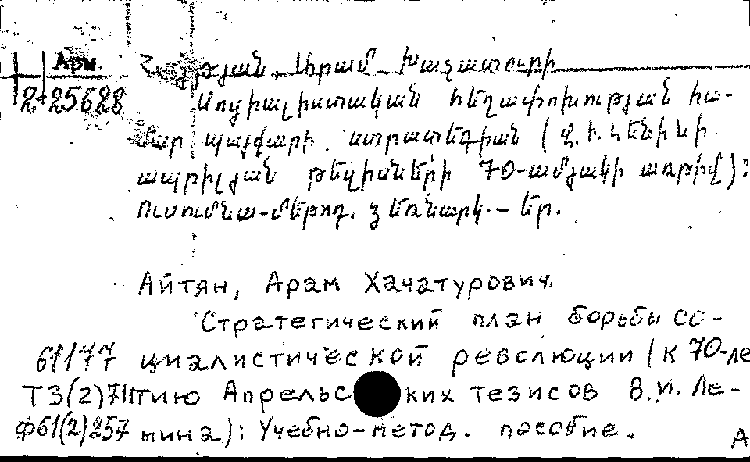 Арм. Հայթյան Արամ Խաչատուրի
2-25628 Սոցիալիստական հեղափոխության հա-
մար պայքարի ստրատեգիան (Վ.Ի.Լենինի
ապրիլյան թեզիսների 70-ամյակի առթիվ):
Ուսումնա-մեթոդ. ձեռնարկ.- Եր.
Айтян, Арам Хачатурович.
Стратегический план борьбы со-
61177 циалистической революции (к 70-ле
Т3(2)711 тию Апрельских тезисов В.И. Ле-
Ф61(2)257 нина): Учебно-метод. пособие.
А